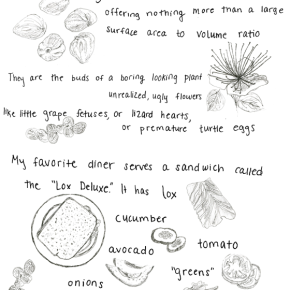 offering nothing more than a large
surface area to volume ratio
They are the buds of a boring looking plant
unrealized, ugly flowers
like little grape fetuses, or lizard hearts,
or premature turtle eggs
My favorite diner serves a sandwich called
the "Lox Deluxe." It has lox
cucumber
avocado
tomato
"greens"
onions